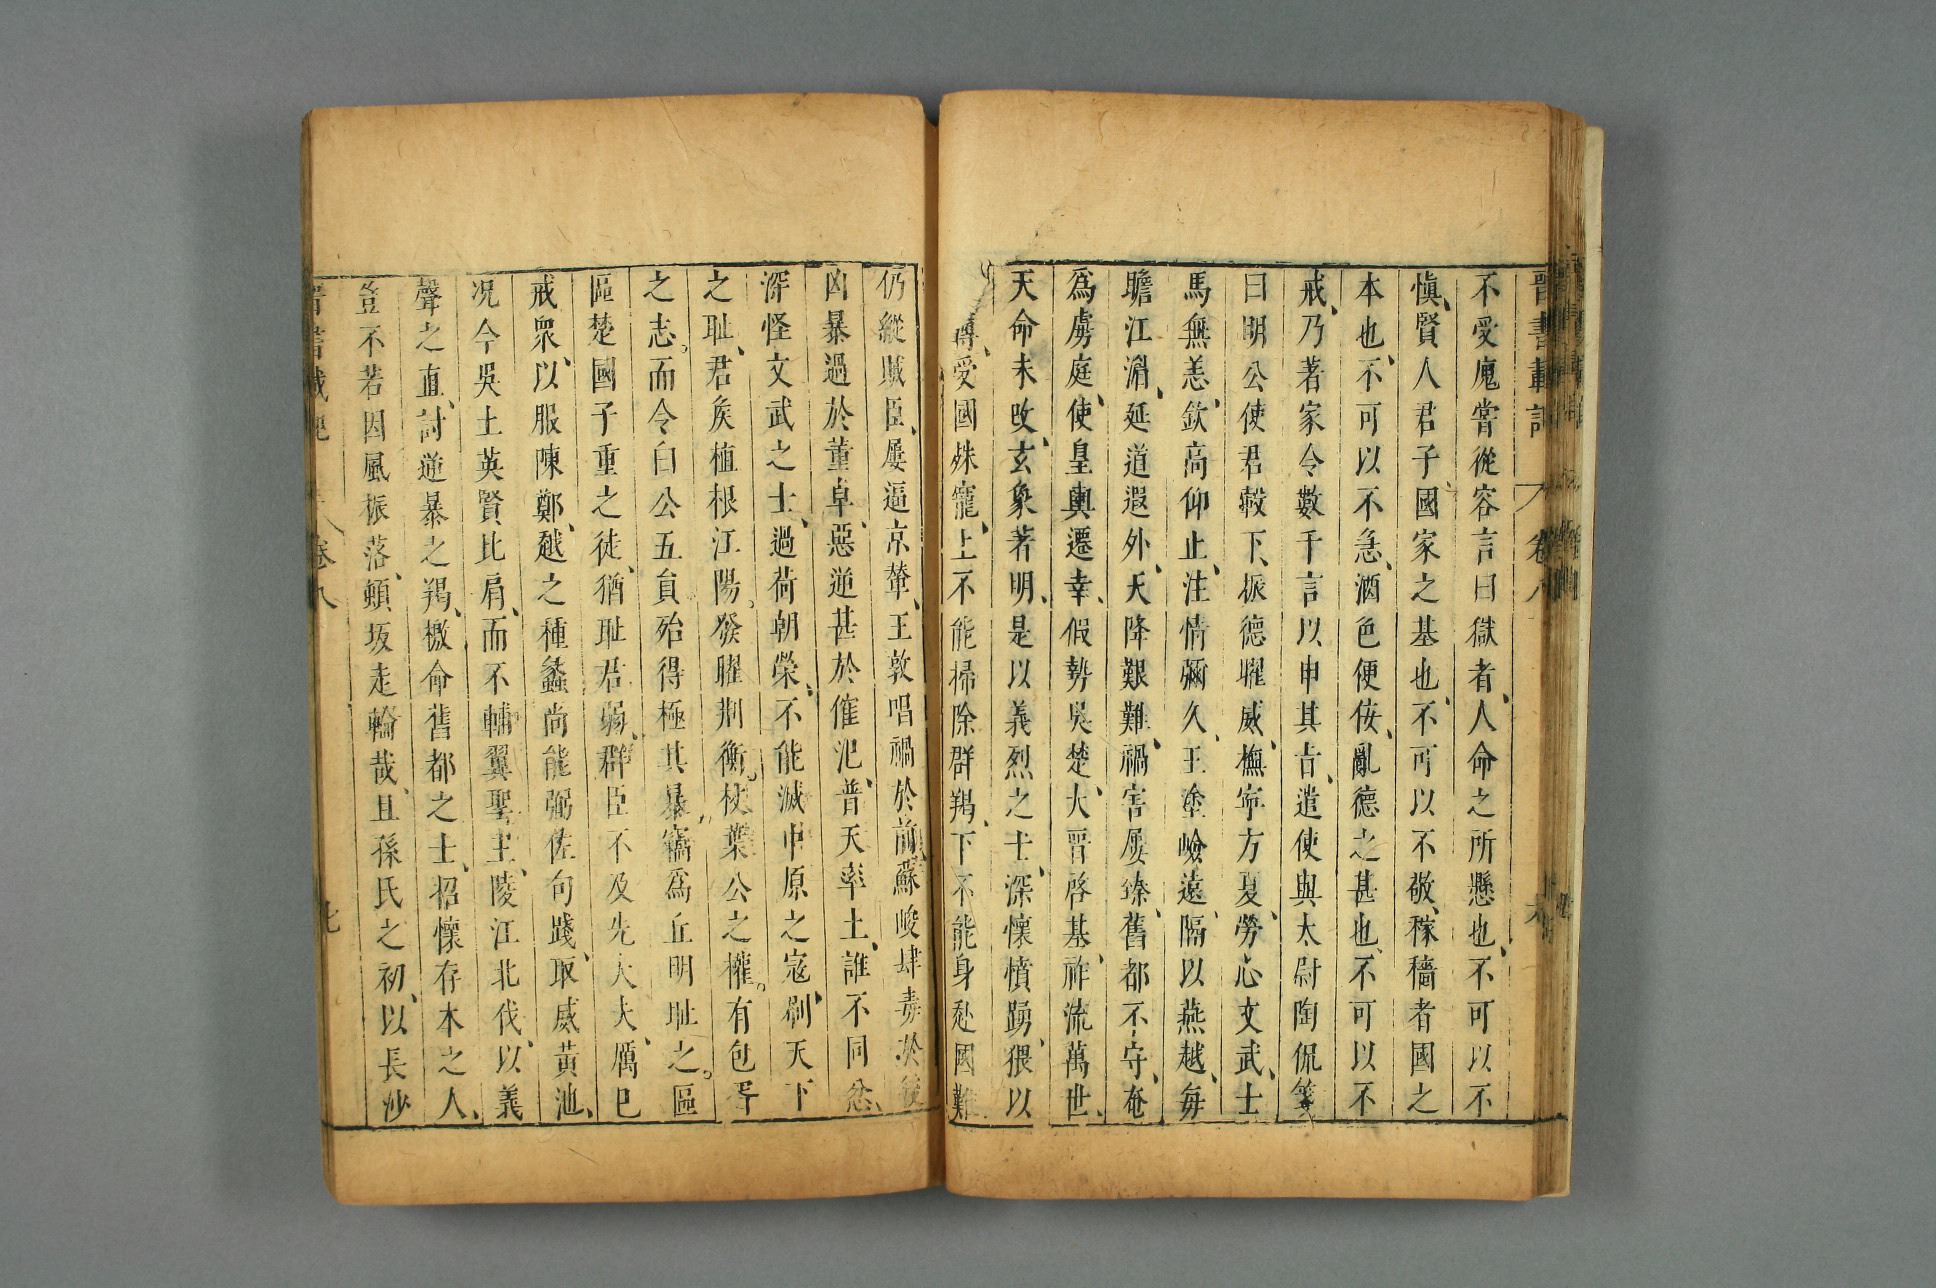 晉書載記 卷八 六
不受廆嘗從容言曰獄者人命之所懸也不可以不
慎賢人君子國家之基也不可以不敬稼穡者國之
本也不可以不急酒色便佞亂德之甚也不可以不
戒乃著家令數千言以申其旨遣使與太尉陶侃箋
曰明公使君轂下振德曜威撫寧方夏勞心文武士
馬無恙欽高仰止注情彌久王塗嶮遠隔以燕越每
瞻江湄延道遐外天降艱難禍害屢臻舊都不守奄
爲虜庭使皇輿遷幸假勢吳楚大晉啓基祚流萬世
天命未改玄象著明是以義烈之士深懷憤踴猥以
薄受國殊寵上不能掃除群羯下不能身赴國難
仍縱賊臣屢逼京輦王敦唱禍於前蘇峻肆毒於後
凶暴過於董卓惡逆甚於傕汜普天率土誰不同忿
深怪文武之士過荷朝榮不能滅中原之寇刷天下
之耻君矦植根江陽發曜荆衡杖葉公之權有包胥
之志而令白公五貟殆得極其暴竊爲丘明耻之區
區楚國子重之徒猶耻君弱群臣不及先大夫厲已
戒衆以服陳鄭越之種蠡尚能弼佐句踐取威黃池
况今吳土英賢比肩而不輔翼聖主陵江北伐以義
聲之直討逆暴之羯檄命舊都之士招懷存本之人
豈不若因風振落頓坂走輪哉且孫氏之初以長沙
晉書載記 卷八 七